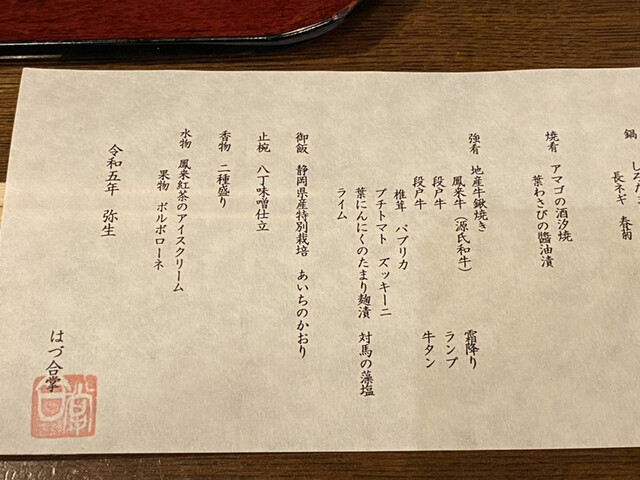 鍋
長ネギ 春菊
焼肴 アマゴの酒汐焼
葉わさびの醬油漬
強肴 地産牛鍬焼き
鳳来牛（源氏和牛） 霜降り
段戸牛 ランプ
段戸牛 牛タン
椎茸 パプリカ
プチトマト ズッキーニ
葉にんにくのたまり麹漬 対馬の藻塩
ライム
御飯 静岡県産特別栽培 あいちのかおり
止椀 八丁味噌仕立
香物 二種盛り
水物 鳳来紅茶のアイスクリーム
果物 ボルボローネ
令和五年 弥生
はづ合掌